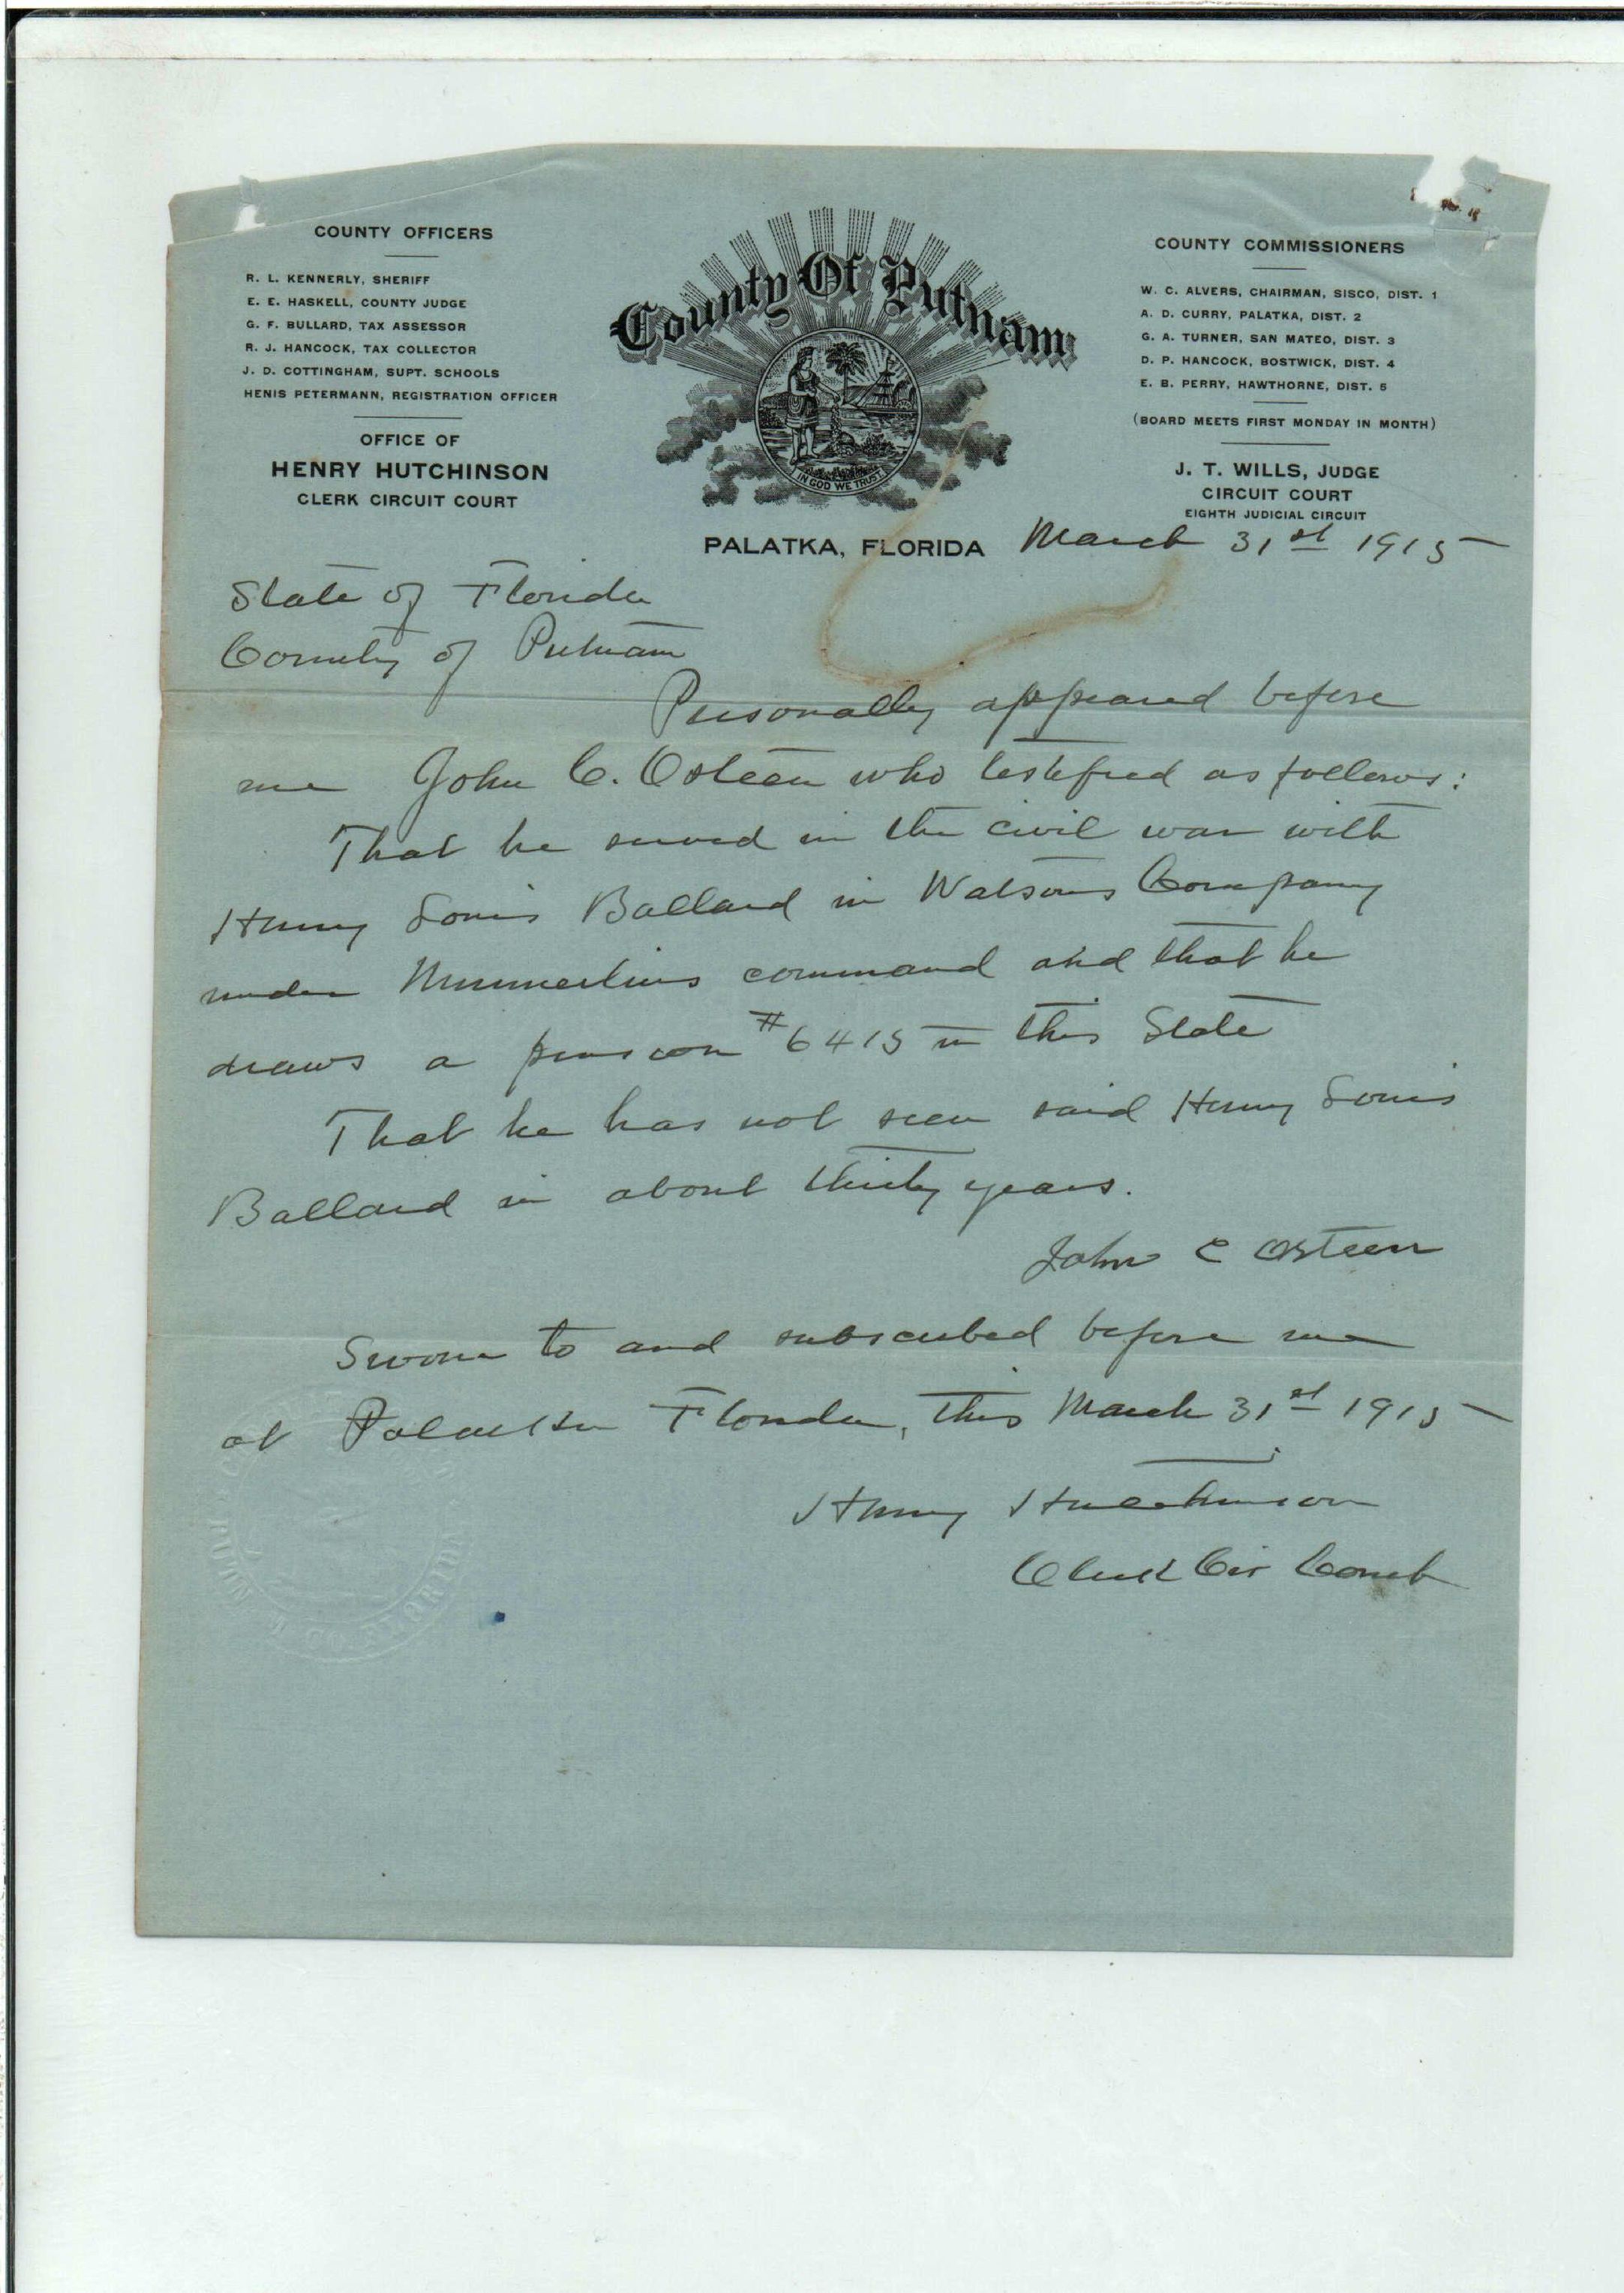 COUNTY OFFICERS
R. L. KENNERLY, SHERIFF
E. E. HASKELL, COUNTY JUDGE
G. F. BULLARD, TAX ASSESSOR
R. J. HANCOCK, TAX COLLECTOR
J. D. COTTINGHAM, SUPT. SCHOOLS
HENIS PETERMANN, REGISTRATION OFFICER
OFFICE OF
HENRY HUTCHINSON
CLERK CIRCUIT COURT
County Of Putnam
IN GOD WE TRUST
COUNTY COMMISSIONERS
W. C. ALVERS, CHAIRMAN, SISCO, DIST. 1
A. D. CURRY, PALATKA, DIST. 2
G. A. TURNER, SAN MATEO, DIST. 3
D. P. HANCOCK, BOSTWICK, DIST. 4
E. B. PERRY, HAWTHORNE, DIST. 5
(BOARD MEETS FIRST MONDAY IN MONTH)
J. T. WILLS, JUDGE
CIRCUIT COURT
EIGHTH JUDICIAL CIRCUIT
PALATKA, FLORIDA March 31st 1915
State of Florida
County of Putnam
Personally appeared before
me John C. Osteen who testified as follows:
That he served in the civil war with
Henry Louis Ballard in Watsons Company
under Munnerlins command and that he
draws a pension #6415 in this State
That he has not seen said Henry Louis
Ballard in about thirty years.
John C Osteen
Sworn to and subscribed before me
at Palatka Florida, this March 31st 1915
Henry Hutchinson
Clerk Cir Court
PUTNAM CO. FLORIDA